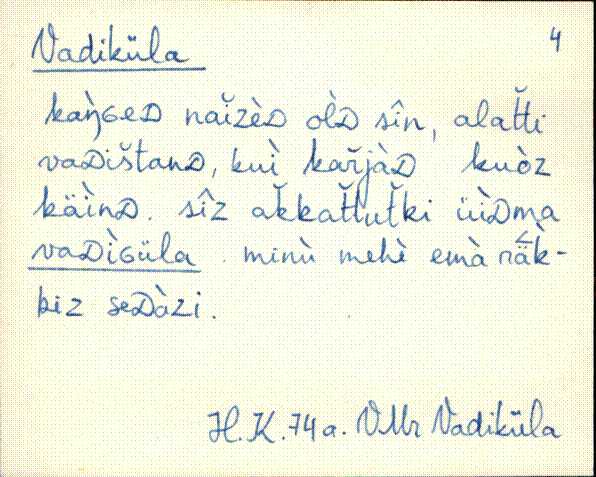 Vadiküla
4
kaŋ̀ɢeᴅ naĭzèᴅ òlᴅ sîn, alat̆ti
vaᴅištanᴅ, kuì kar̆jàᴅ kuòz
käìnᴅ. sîz ak̆kat̆lut̆ki üìᴅma
vaᴅìɢüla. minù mehè emà räk̀-
kiz seᴅàzi.
H.K. 74 a. VMr Vadiküla